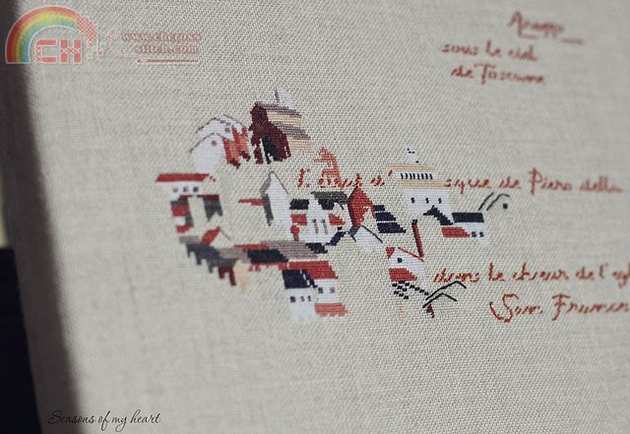 CH
www.chcross
stitch.com
Arezzo
sous le ciel
de Toscane
de Piero della
dans le chœur de l'égl
San Frances
Seasons of my heart